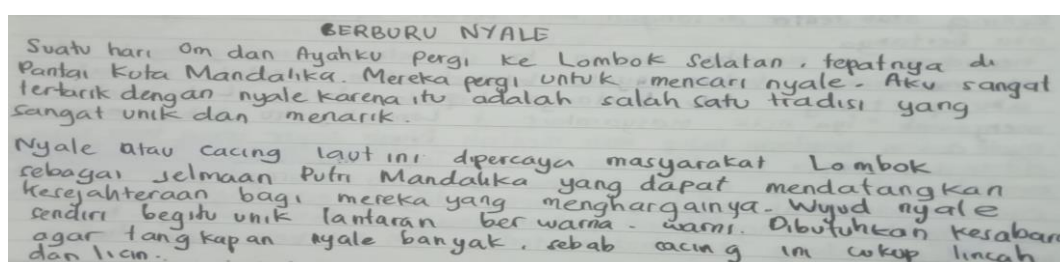 BERBURU NYALE
Suatu hari Om dan Ayahku Pergi ke Lombok Selatan, tepatnya di
Pantai Kuta Mandalika. Mereka pergi untuk mencari nyale. Aku sangat
tertarik dengan nyale karena itu adalah salah satu tradisi yang
sangat unik dan menarik.
Nyale atau cacing laut ini dipercaya masyarakat Lombok
sebagai Jelmaan Putri Mandalika yang dapat mendatangkan
kesejahteraan bagi mereka yang menghargainya. Wujud nyale
sendiri begitu unik lantaran ber warna - warni. Dibutuhkan kesabaran
agar tangkapan nyale banyak, sebab cacing ini cukup lincah
dan licin.